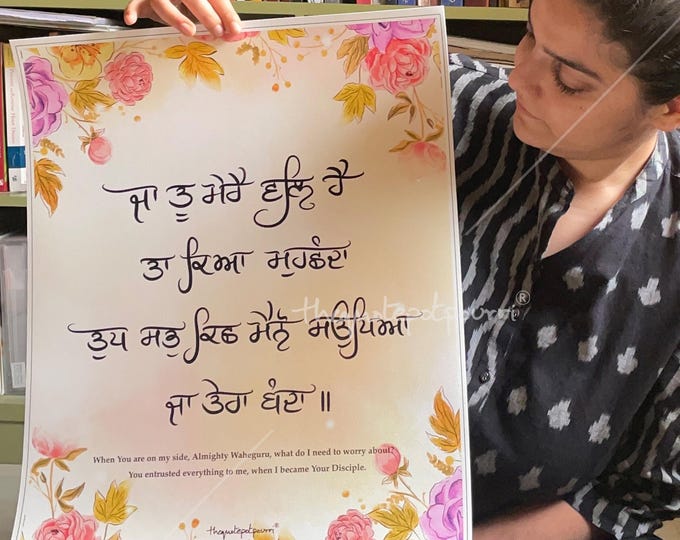 ਜਾ ਤੂ ਮੇਰੈ ਵਲਿ ਹੈ
ਤਾ ਕਿਆ ਮੁਹਛੰਦਾ
ਤੁਧ ਸਭੁ ਕਿਛ ਮੈਨੋ ਸਉਪਿਆ
ਜਾ ਤੇਰਾ ਬੰਦਾ ॥
When You are on my side, Almighty Waheguru, what do I need to worry about?
You entrusted everything to me, when I became Your Disciple.
thequotepotpourri®
thequotepotpourri®